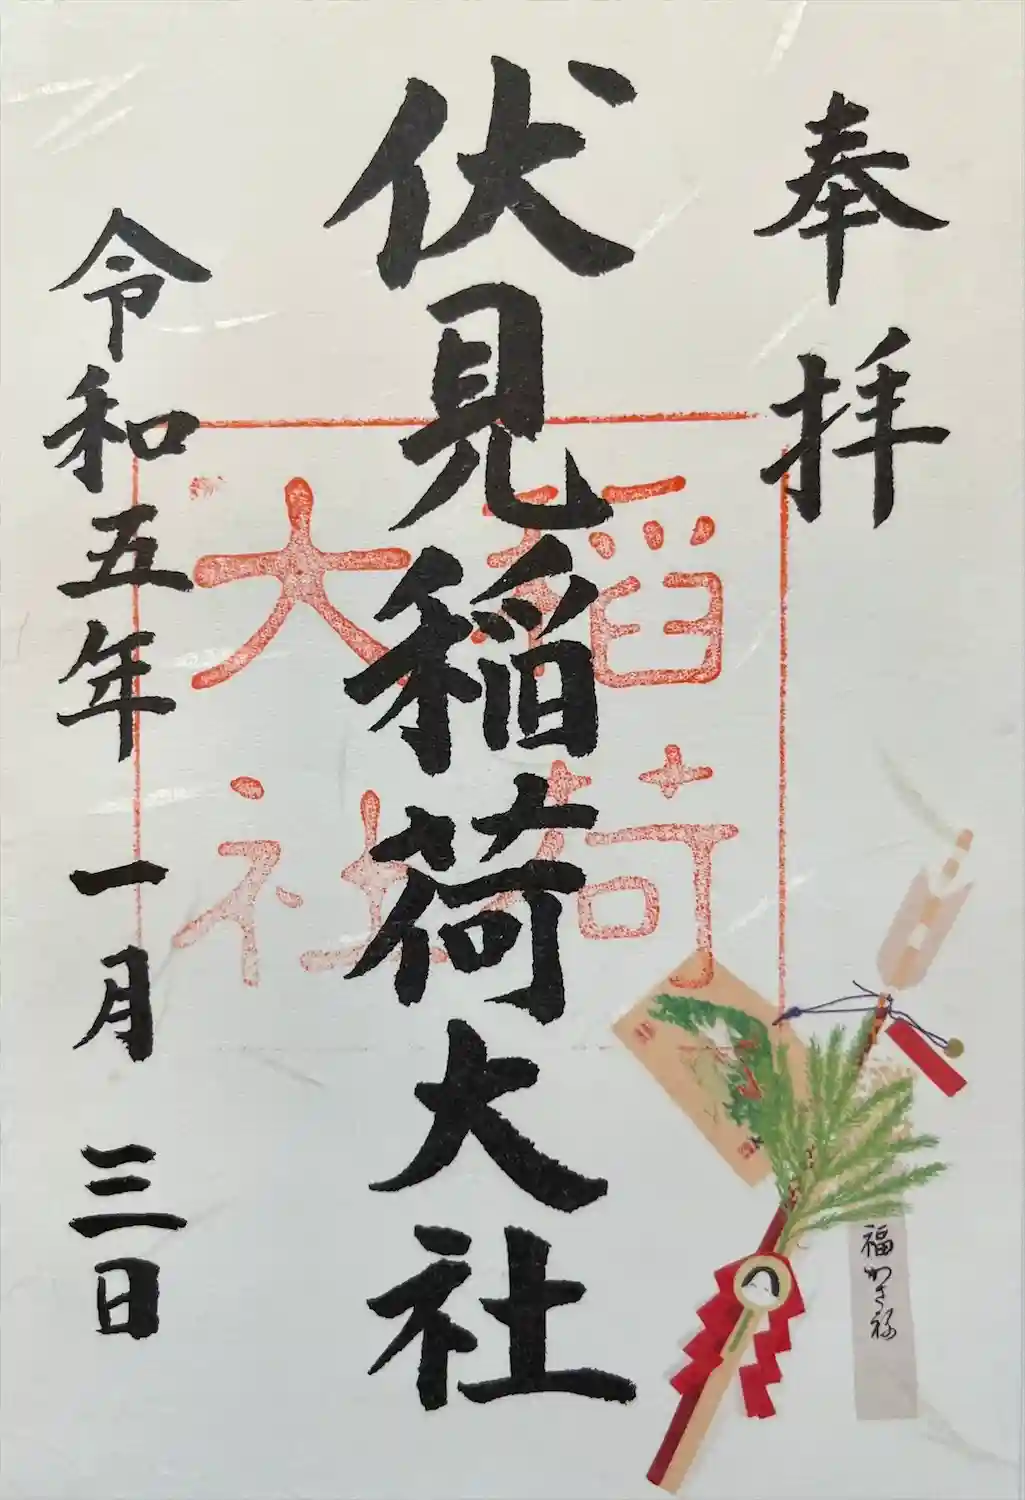 奉拝
伏見稲荷大社
稲荷
大社
令和五年一月三日
福かさね